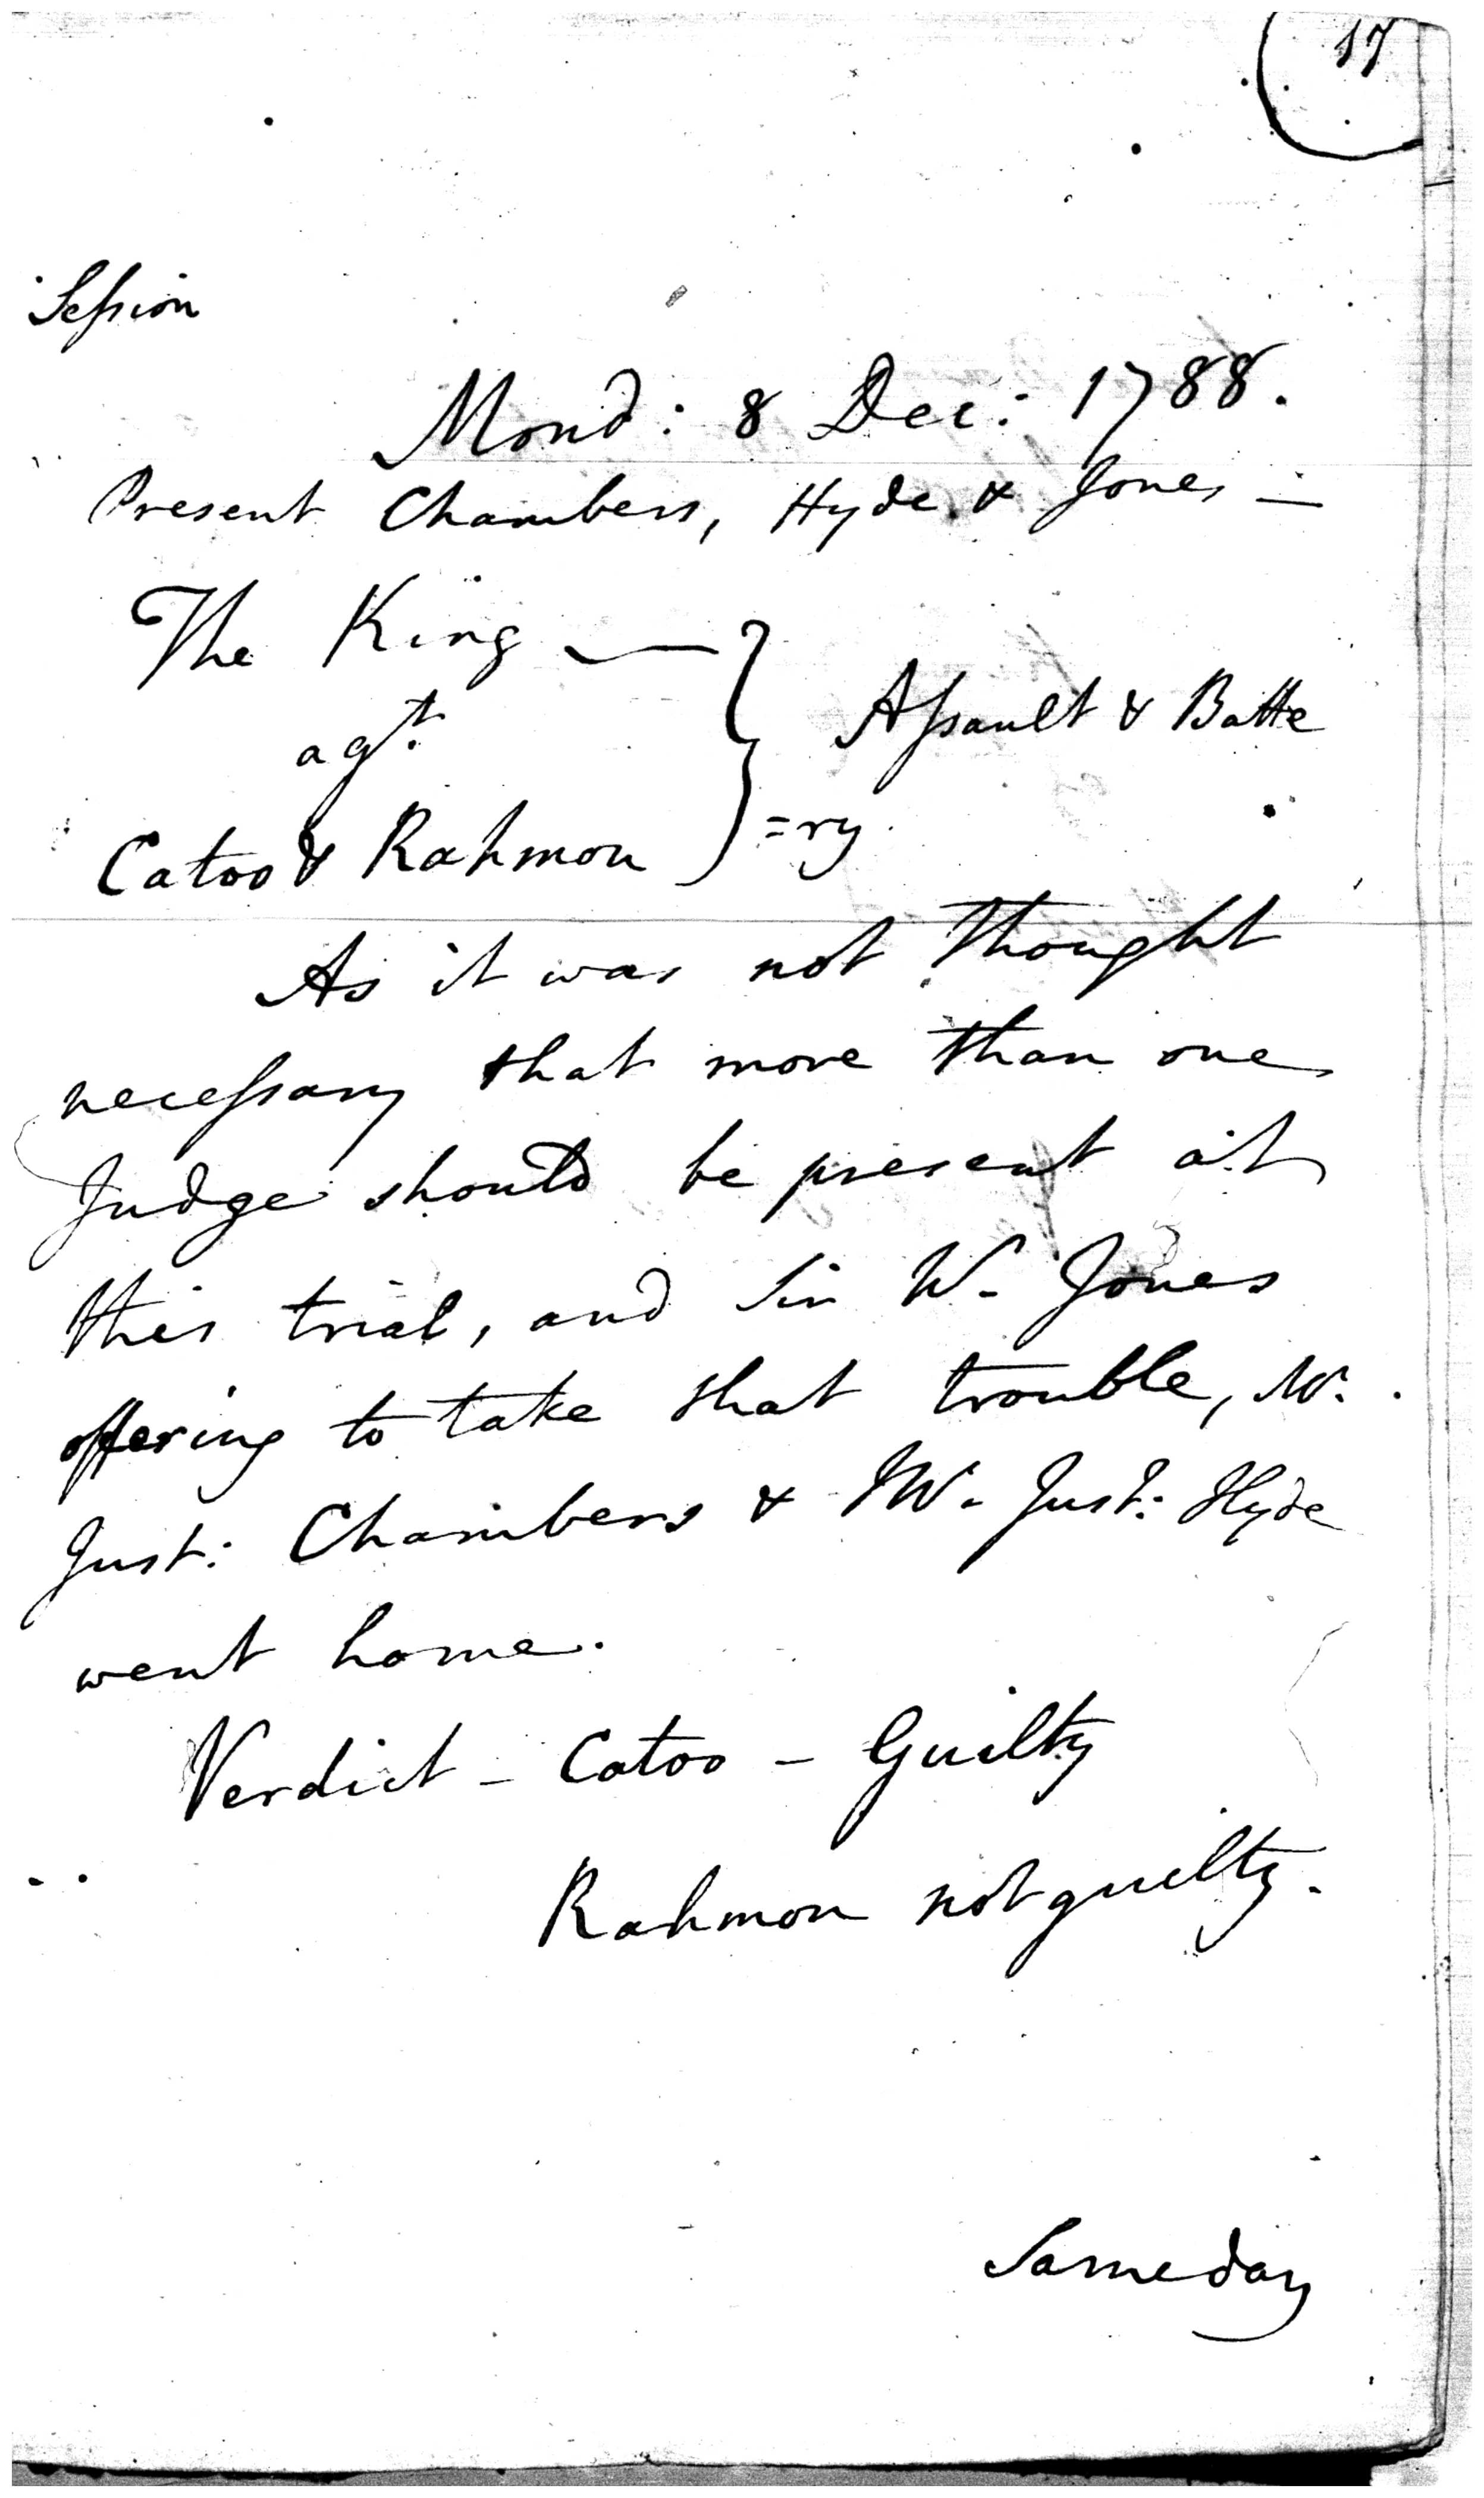 17
Session
Mond: 8 Dec: 1788.
Present Chambers, Hyde & Jones —
The King —
agt. } Assault & Batte
Catoo & Rahmon =ry
As it was not thought
necessary that more than one
Judge should be present at
this trial, and Sir W. Jones
offering to take that trouble, M.
Just: Chambers & M. Just: Hyde
went home.
Verdict – Catoo – Guilty
Rahmon not guilty.
Same day